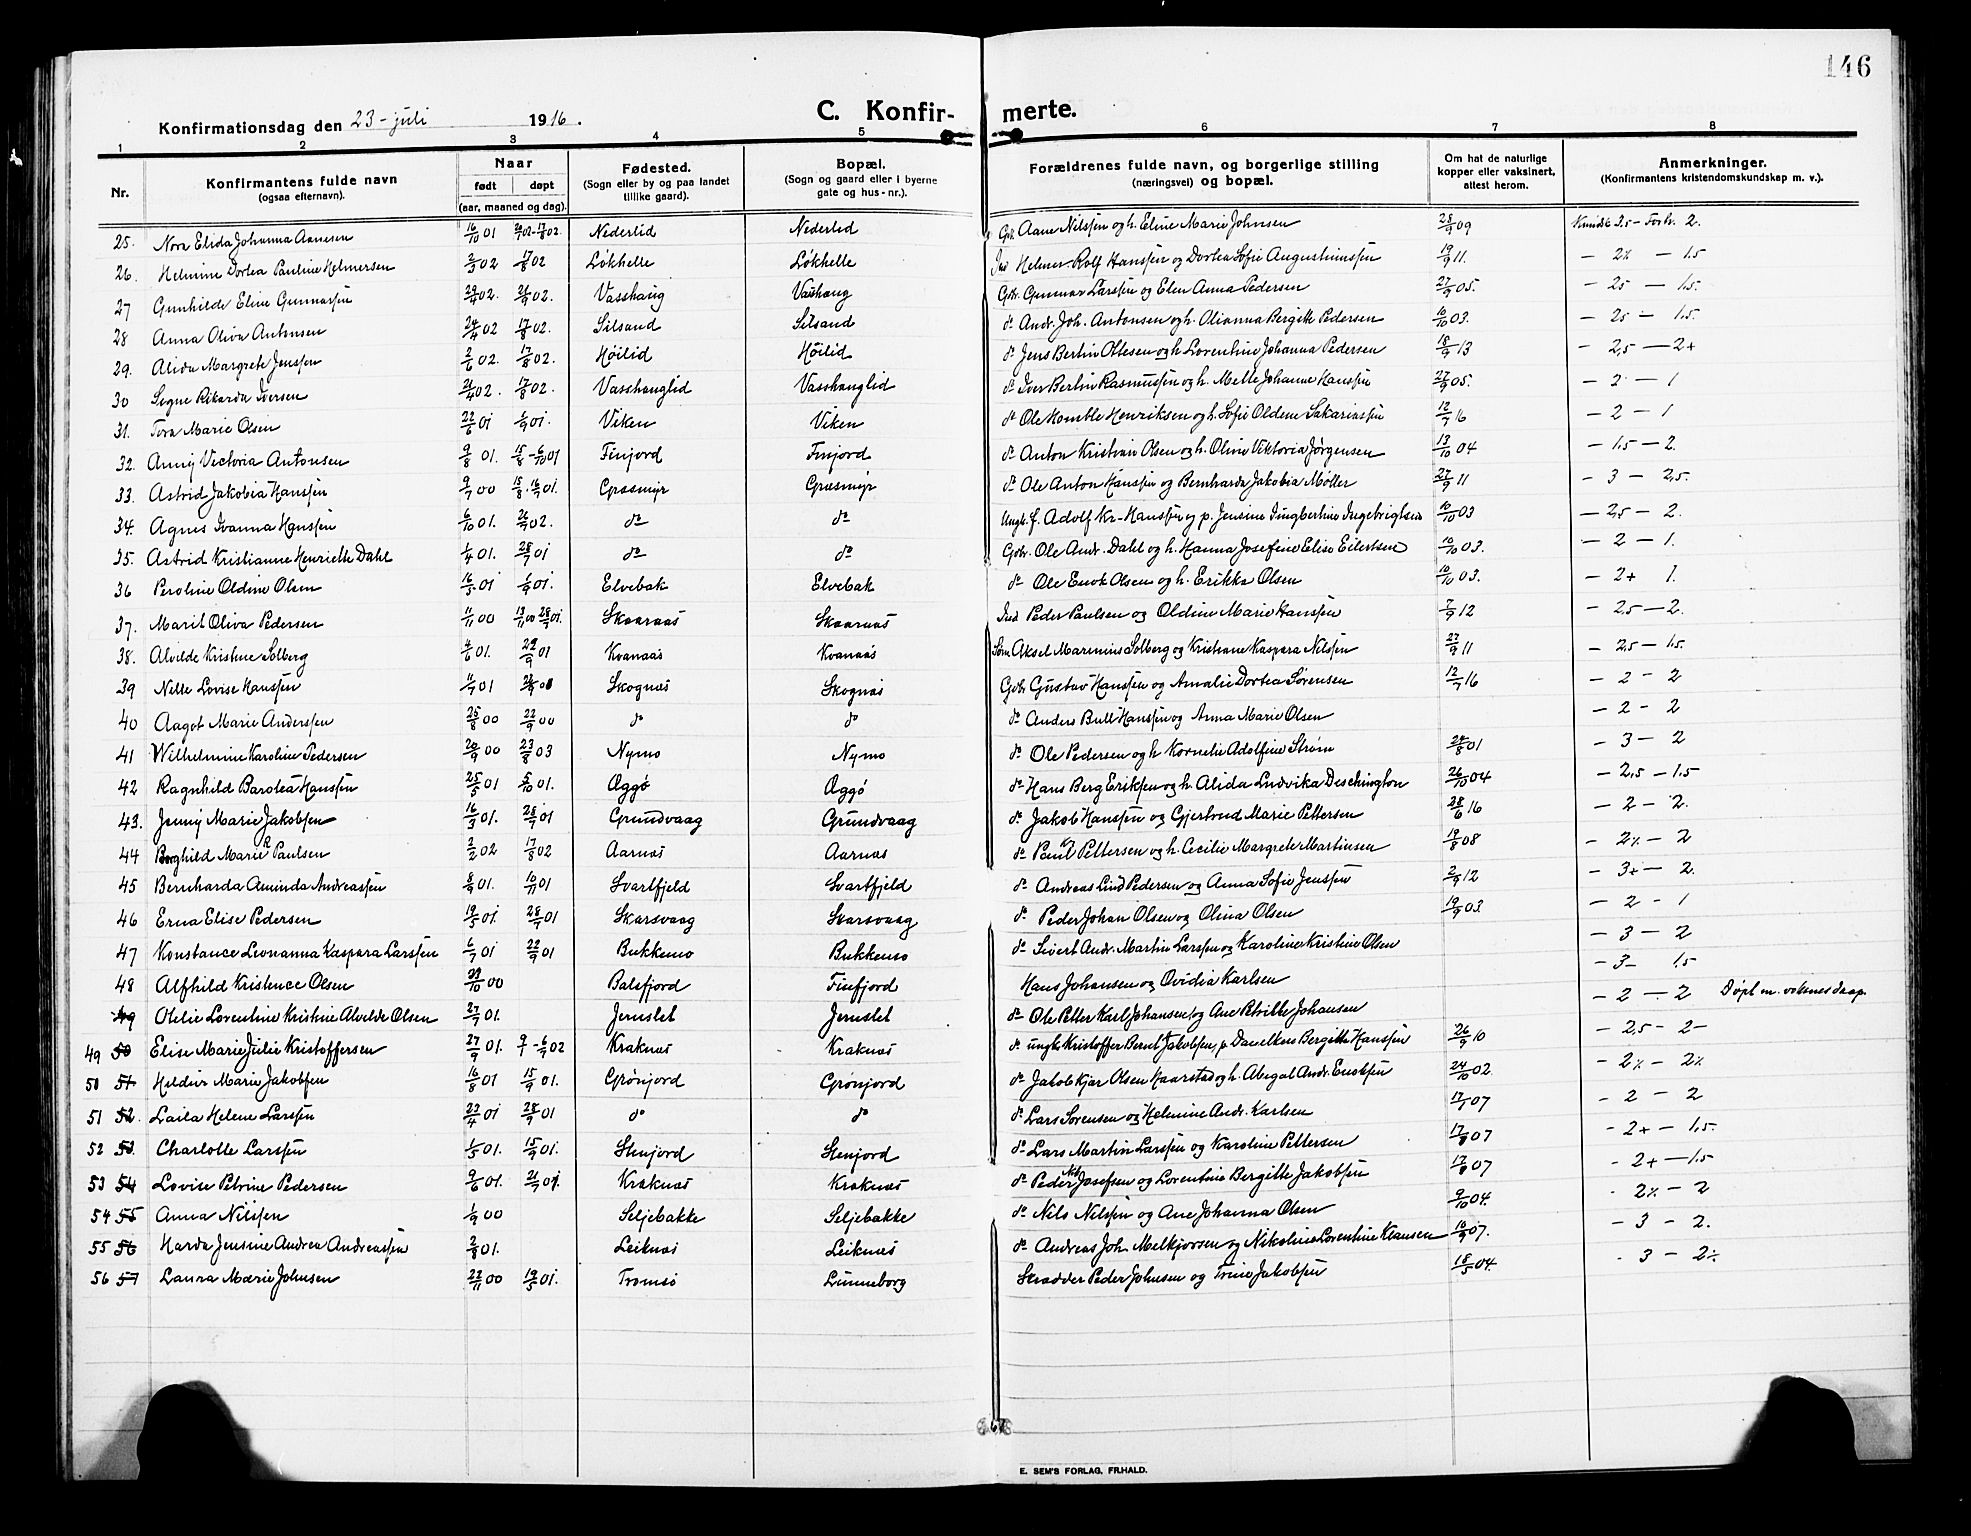 146
C. Konfir- merte.
Konfirmationsdag den 23-juli 1916.
1 2 3 4 5 6 7 8
Nr. Konfirmantens fulde navn (ogsaa efternavn). Naar født døpt (aar, maaned og dag). Fødested. (Sogn eller by og paa landet tillike gaard). Bopæl. (Sogn og gaard eller i byerne gate og hus-nr.). Forældrenes fulde navn, og borgerlige stilling (næringsvei) og bopæl. Om hat de naturlige kopper eller vaksinert, attest herom. Anmerkninger. (Konfirmantens kristendomskundskap m. v.).
25. Nora Elida Johanna Aanesen 16/10 01 Nederlid Nederlid Gbr. Aane Nilssen og h. Eline Marie Johnsen 28/9 09 2.
26. Helmine Dortea Pauline Helmersen 2/3 02 17/8 02 Løkhelle Løkhelle Ind Helmer Rolf Hanssen og Dortea Sofie Augustinussen 19/9 11. - 2% - 1.5
27 Gunhilde Eline Gunnarsen 29/4 02. 21/9 02. Vasshaug Vasshaug Gbr. Gunnar Larssen og Elen Anna Pedersen 27/9 05. - 25 - 1.5.
28 Anna Oliva Antonsen 24/4 02 17/8 02. Silsand Silsand do Andr. Joh. Antonsen og h. Olianna Bergitte Pedersen 10/10 03. - 25 - 1.5.
29. Alida Margrete Jenssen 2/6 02. 17/8 02. Høilid Høilid do Jens Bertin Ottesen og h. Lorentine Johanna Pedersen 18/9 13 - 2,5 - 2+
30 Signe Rikarda Iversen 21/4 02. 17/8 02. Vasshauglid Vasshauglid do Iver Bertin Rasmussen og h. Mette Johanne Hanssen 27/9 05. - 2 - 1
31. Tora Marie Olsen 22/6 01 1/9 01. Viken Viken do Ole Homble Henriksen og h. Sofie Oldine Sakariassen 12/7 16 - 2 - 1
32. Anny Victoria Antonsen 9/8 01. 15/8 - 6/10 01 Finjord Finjord do Anton Kristian Olsen og h. Oline Viktoria Jørgensen 13/10 04 - 1.5 - 2.
33. Astrid Jakobia Hanssen 9/7 00 Græsmyr Græsmyr do Ole Anton Hanssen og Bernharda Jakobia Møller 27/9 11 - 3 - 2,5.
34. Agnes Ivanna Hanssen 6/10 01. 26/9 02. do do Ungk. f. Adolf Kr. Hanssen og p. Jensine Ingbertine Ingebrigtsen 10/10 03 - 2,5 - 2.
35. Astrid Kristianne Henriette Dahl 1/4 01. 28/7 01 do do Gbr. Ole Andr. Dahl og h. Hanna Josefine Elise Eilertsen 10/10 03. - 2 - 1.
36 Peroline Oldine Olsen 16/5 01 1/9 01. Elvebak Elvebak do Ole Enok Olsen og h. Erikka Olsen 10/10 03. - 2+ 1.
37. Marit Oliva Pedersen 11/11 00 13/11 00 28/7 01. Skaaraas Skaaraas Ind Peder Paulsen og Oldine Marie Hanssen 7/9 12 - 2,5 - 2.
38. Alvilde Kristine Solberg 4/6 01. 22/9 01 Kvanaas Kvanaas Aksel Marinius Solberg og Kristiane Kaspara Nilssen 27/9 11 - 2,5 - 1.5.
39 Nelle Lovise Hanssen 11/7 01 Skognæs Skognæs Gbr Gustav Hanssen og Amalie Dortea Sørensen 12/7 16 - 2 - 2
40 Aagot Marie Anderssen 25/8 00 22/9 00 do do do Anders Bull Hanssen og Anna Marie Olsen - 2 - 2
41 Wilhelmine Karoline Pedersen 20/9 00 23/8 03 Nymo Nymo do Ole Pedersen og h Kornelie Adolfine Strøm 24/8 01 - 3 - 2
42 Ragnhild Barolea Hanssen 25/5 01 5/10 01. Æggø Æggø do Hans Berg Eriksen og h. Alida Ludvika Deschington 26/10 04 - 2,5 - 1.5
43. Jenny Marie Jakobsen 16/3 01. 28/7 01 Grundvaag Grundvaag do Jakob Hanssen og Gjertrud Marie Pettersen 28/6 16 - 2 - 2.
44 Borghild Marie Paulsen 2/2 02 17/8 02 Aarnæs Aarnæs do Paul Pettersen og h. Cecilie Margrete Martinsen 19/8 08 - 2% - 2
45 Bernharda Aminda Andreassen 8/9 01. 10/11 01 Svartfjeld Svartfjeld do Andreas Lind Pedersen og Anna Sofie Jenssen 2/9 12 - 3+ - 2.
46 Erna Elise Pedersen 19/5 01. 28/7 01 Skarsvaag Skarsvaag do Peder Johan Olsen og Olina Olsen 19/9 03. - 2 - 1
47 Konstance Leonanna Kaspara Larssen 6/7 01 22/9 01 Bukkemo Bukkemo do Sivert Andr. Martin Larssen og Karoline Kristine Olsen - 3 - 2
48 Alfhild Kristence Olsen 00 Balsfjord Finfjord Hans Johansen og Ovidia Karlsen - 3 - 1.5
49 Otelie Lorentine Kristine Alvelde Olsen 27/7 01. Jernslet Jernslet do Ole Petter Karl Johansen og Ane Petrikke Johansen - 2 - 2 Døpt m. voksnes daap.
49 50 Elise Marie Julie Kristoffersen 27/9 01. Kraknæs Kraknæs do ungk. Kristoffer Bernt Jakobsen, p. Danelkea Bergitte Hanssen 26/9 10 - 2,5 - 2-
50 51 Heldur Marie Jakobsen 16/8 01 15/9 01. Grønjord Grønjord do Jakob Kjær Olsen Kaarstad og h. Abigal Andr. Enoksen 24/10 02. - 2% - 2%
51 52. Laila Helene Larssen 22/4 01 28/9 01 do do do Lars Sørensen og Helmine Andr. Karlsen 07 - 2 - 2
52 53. Charlotte Larssen 1/5 01. 15/9 01. Stenjord Stenjord do Lars Martin Larssen og Karoline Pettersen 17/8 07 - 2+ - 1,5.
53 54 Lovise Petrine Pedersen 9/6 01. 21/7 01. Kraknæs Kraknæs do Peder Nik Josefsen og Lorentine Bergitte Jakobsen 17/8 07 - 2+ - 1.5
54 55 Anna Nilssen 1/9 00 Seljebakke Seljebakke do Nils Nilssen og Ane Johanna Olsen 9/10 04. - 2% - 2
55 56 Harda Jensine Andrea Andreassen 2/8 01. Leiknæs Leiknæs do Andreas Joh. Melkjorsen og Nikoline Lorentine Klausen 10/9 07. - 3 - 2.
56 57 Laura Marie Johnsen 22/11 00 19/5 01. Tromsø Lunneborg Skrædder Peder Johnsen og Trine Jakobsen 18/5 04. - 3 - 2%
E. SEM'S FORLAG, FR.HALD.